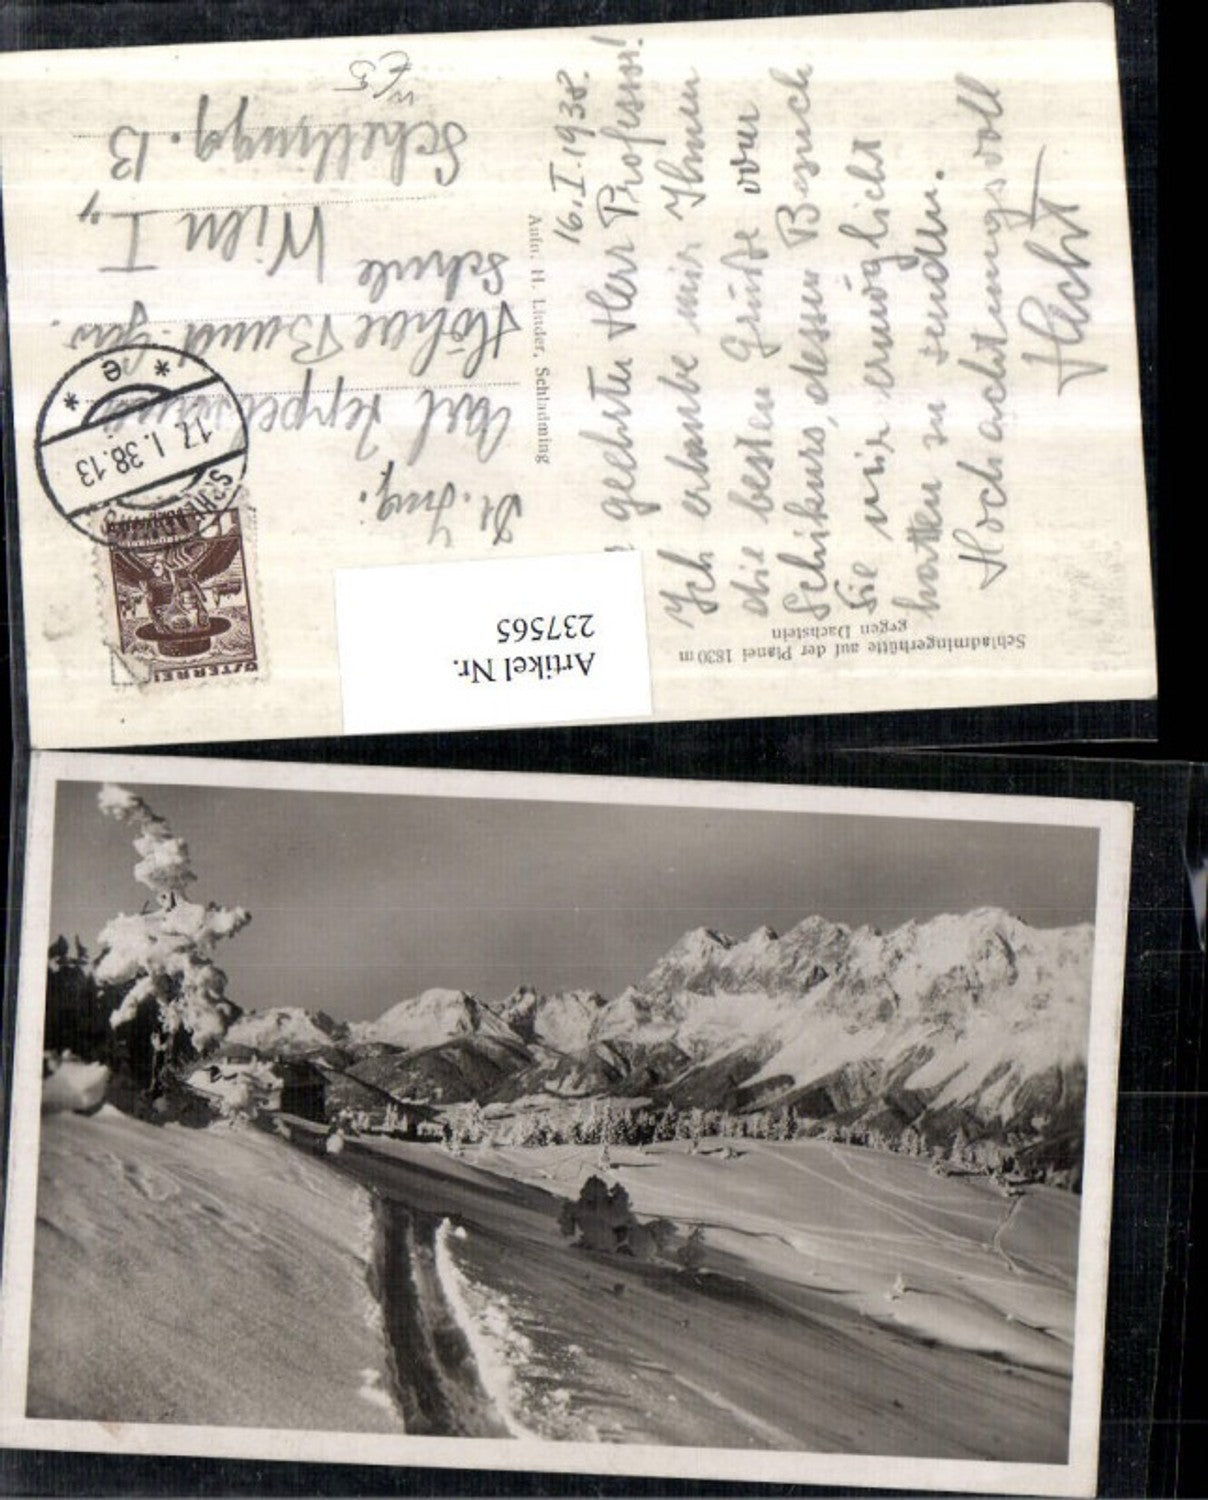 Schladmingerhütte auf der Planei 1830 m
gegen Dachstein
16. I. 1938.
geehrter Herr Professor!
Ich erlaube mir Ihnen
die besten Grüße vom
Schikurs, dessen Besuch
Sie mir ermöglicht
hatten zu senden.
Hochachtungsvoll
Hecht
Aufn. H. Linder, Schladming
Dr. Ing.
Karl
Höhere Bund. Gew.
Schule Wien I.,
Schellingg. 13
SCHLADMING
17. I. 38. 13
* e *
ÖSTERREICH
Artikel Nr.
237565